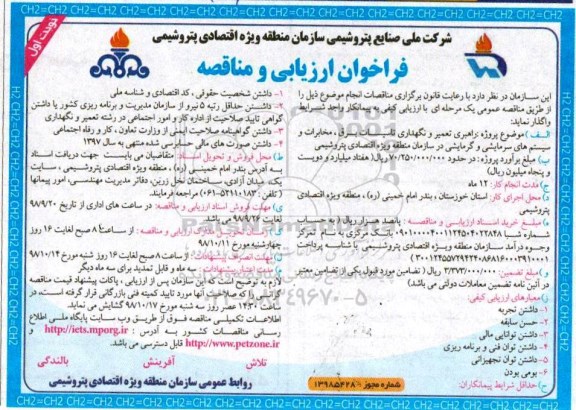 CH2=CH2 CH2=CH2 CH2=CH2 CH2=CH2 CH2=CH2 CH2=CH2
نوبت اول
شرکت ملی صنایع پتروشیمی سازمان منطقه ویژه اقتصادی پتروشیمی
فراخوان ارزیابی و مناقصه
این سازمان در نظر دارد با رعایت قانون برگزاری مناقصات انجام موضوع ذیل را
از طریق مناقصه عمومی یک مرحله ای با ارزیابی کیفی به پیمانکار واجد شرایط
واگذار نماید:
الف) موضوع پروژه: راهبری تعمیر و نگهداری تاسیسات برق، مخابرات و
سیستم های سرمایشی و گرمایشی در سازمان منطقه ویژه اقتصادی پتروشیمی
ب) مبلغ برآورد پروژه: در حدود ۷۰/۲۵۰/۰۰۰/۰۰۰ ریال( هفتاد میلیارد و دویست
و پنجاه میلیون ریال)
ج) مدت انجام کار: ۱۲ ماه
د) محل اجرای کار: استان خوزستان ، بندر امام خمینی (ره) ، منطقه ویژه اقتصادی
پتروشیمی
ه) مبلغ خرید اسناد ارزیابی و مناقصه : پانصد هزار ریال (به حساب
وجوه درآمد سازمان منطقه ویژه اقتصادی پتروشیمی با شناسه پرداخت
و) مبلغ تضمین: ۳/۳۷۳/۰۰۰/۰۰۰ ریال ( تضامین مورد قبول یکی از تضامین معتبر
در آئین نامه تضمین معاملات دولتی می باشد)
ز) معیارهای ارزیابی کیفی:
۱- داشتن تجربه
۲- حسن سابقه
۳- داشتن توانایی مالی
۴- داشتن توان فنی و برنامه ریزی
۵- داشتن توان تجهیزاتی
۶- بومی بودن
ح) حداقل شرایط پیمانکاران:
۱- داشتن شخصیت حقوقی ، کد اقتصادی و شناسه ملی
۲- داشتن حداقل رتبه ۵ نیرو از سازمان مدیریت و برنامه ریزی کشور یا داشتن
گواهی تایید صلاحیت از اداره کار و امور اجتماعی در رشته تعمیر و نگهداری
۳- داشتن گواهینامه صلاحیت ایمنی از وزارت تعاون ، کار و رفاه اجتماعی
۴- داشتن صورت های مالی حسابرسی شده منتهی به سال ۱۳۹۷
ط) محل فروش و تحویل اسناد: متقاضیان می بایست جهت دریافت اسناد
به آدرس بندر امام خمینی (ره) ، منطقه ویژه اقتصادی پتروشیمی ، سایت
یک، میدان آزادی، ساختمان نخل زرین، دفاتر مدیریت مهندسی، امور پیمانها
( تلفن: ۵۲۱۱۰۱۸۲-۰۶۱) مراجعه فرمایند.
ی) مهلت فروش اسناد ارزیابی و مناقصه: در ساعت های اداری از تاریخ ۹۸/۹/۲۰
لغایت ۹۸/۹/۲۶ می باشد.
ارزیابی و مناقصه: از ساعت ۸ صبح لغایت ۱۶ روز
چهارشنبه مورخ ۹۸/۱۰/۱۱
از ساعت ۸ صبح لغایت ۱۶ روز شنبه مورخ ۹۸/۱۰/۱۴
سه ماه و قابل تمدید برای سه ماه دیگر
لازم به توضیح است که این سازمان پس از ارزیابی ، پاکات پیشنهاد قیمت مناقصه
گرانی را که صلاحیت آنها مورد تایید کمیته فنی بازرگانی قرار گرفته است، در
ساعت ۱۴:۳۰ عصر روز سه شنبه مورخ ۹۸/۱۰/۱۷ گشایش می نماید
اطلاعات تکمیلی مناقصه فوق از طریق وب سایت پایگاه ملی اطلاع
رسانی مناقصات کشور به آدرس : http://iets.mporg.ir و
http://www.petzone.ir قابل دسترسی می باشد.
تلاش آفرینش بالندگی
روابط عمومی سازمان منطقه ویژه اقتصادی پتروشیمی
شماره مجوز: ۱۳۹۸۵۴۲۸
CH2=CH2 CH2=CH2 CH2=CH2 CH2=CH2 CH2=CH2 CH2=CH2